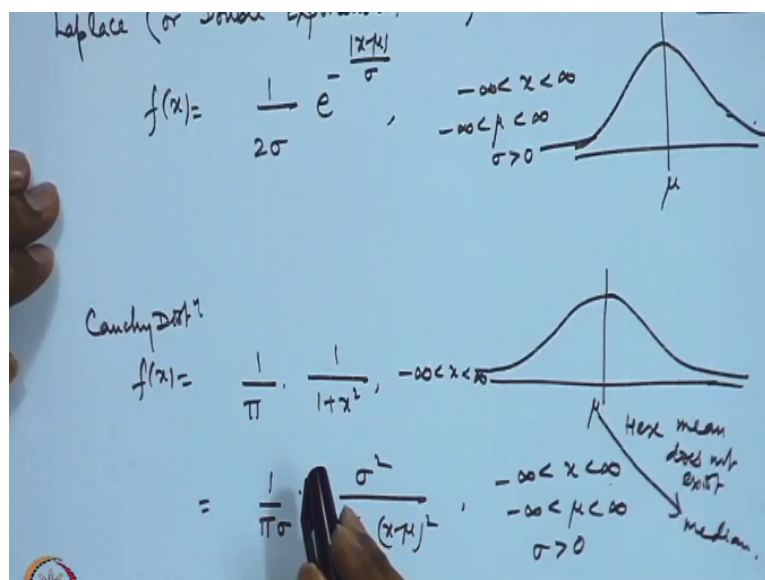 Laplace (or Double
f(x) = 1/2σ e^-|x-μ|/σ , -∞<x<∞
-∞<μ<∞
σ>0
μ
Cauchy Distⁿ
f(x) = 1/π . 1/1+x² , -∞<x<∞
μ
Here mean
does not
exist
median.
= 1/πσ . σ²/(x-μ)² , -∞<x<∞
-∞<μ<∞
σ>0